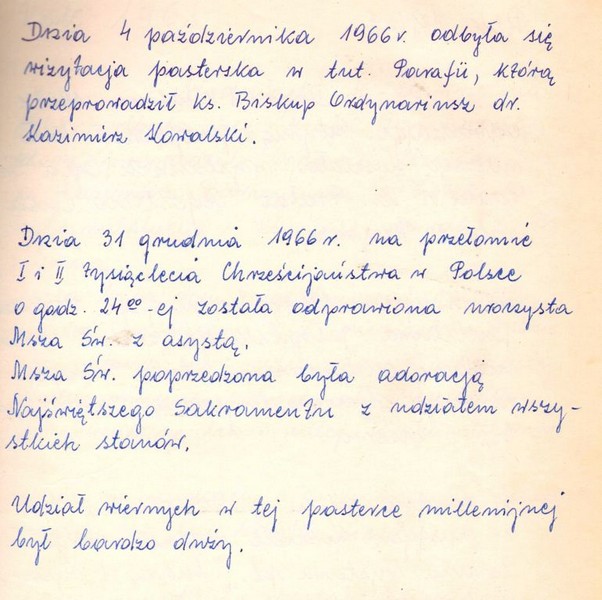 Dnia 4 października 1966 r. odbyła się
wizytacja pasterska w tut. Parafii, którą
przeprowadził Ks. Biskup Ordynariusz dr.
Kazimierz Kowalski.
Dnia 31 grudnia 1966 r. na przełomie
I i II tysiąclecia Chrześcijaństwa w Polsce
o godz. 24⁰⁰-ej została odprawiona uroczysta
Msza Św. z asystą.
Msza Św. poprzedzona była adoracją
Najświętszego Sakramentu z udziałem wszy-
stkich stanów.
Udział wiernych w tej pasterce millenijnej
był bardzo duży.